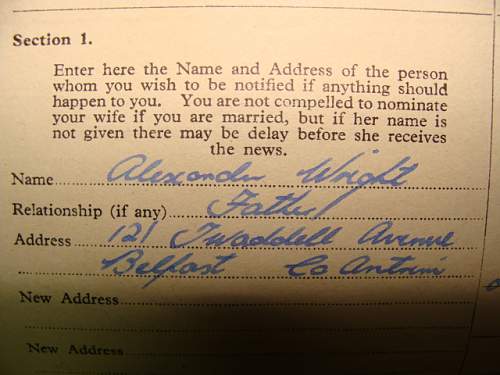 Section 1.
Enter here the Name and Address of the person
whom you wish to be notified if anything should
happen to you. You are not compelled to nominate
your wife if you are married, but if her name is
not given there may be delay before she receives
the news.
Name Alexander Wright
Relationship (if any) Father
Address 121 Twaddell Avenue
Belfast Co Antrim
New Address
New Address